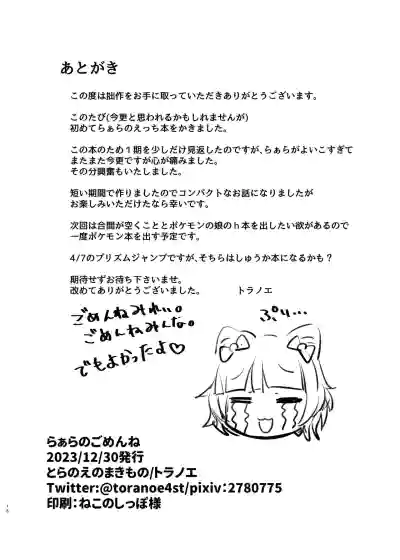 あとがき
この度は拙作をお手に取っていただきありがとうございます。
このたび(今更と思われるかもしれませんが)
初めてらぁらのえっち本をかきました。
この本のため1期を少しだけ見返したのですが、らぁらがよいこすぎて
またまた今更ですが心が痛みました。
その分興奮もいたしました。
短い期間で作りましたのでコンパクトなお話になりましたが
お楽しみいただけたなら幸いです。
次回は合間が空くこととポケモンの娘のh本を出したい欲があるので
一度ポケモン本を出す予定です。
4/7のプリズムジャンプですが、そちらはしゅうか本になるかも？
期待せずお待ち下さいませ。
改めてありがとうございました。 トラノエ
ごめんねみれぃ。
ごめんねみんな。
でもよかったよ♡
ぷり…
らぁらのごめんね
2023/12/30発行
とらのえのまきもの/トラノエ
Twitter:@toranoe4st/pixiv：2780775
印刷：ねこのしっぽ様